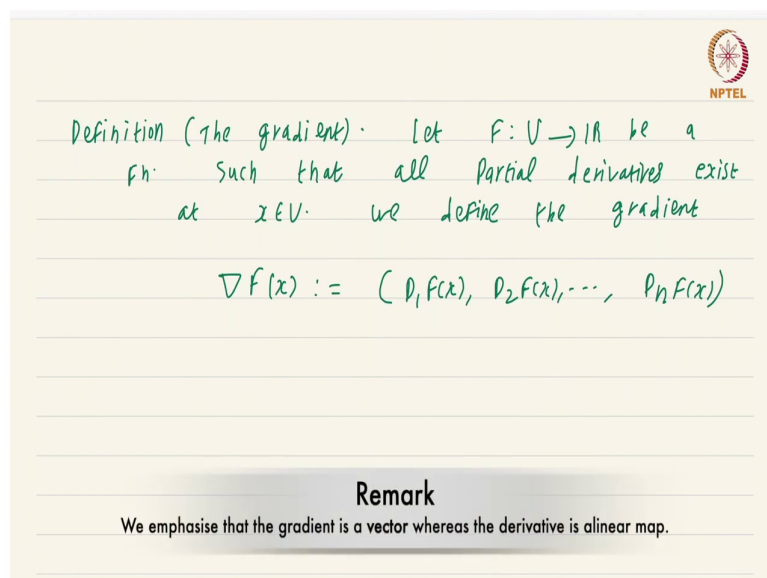 NPTEL
Definition (The gradient). Let F: U → ℝ be a
Fn. such that all Partial derivatives exist
at x ∈ U. we define the gradient
∇F(x) := (D₁F(x), D₂F(x), ..., DₙF(x))
Remark
We emphasise that the gradient is a vector whereas the derivative is alinear map.